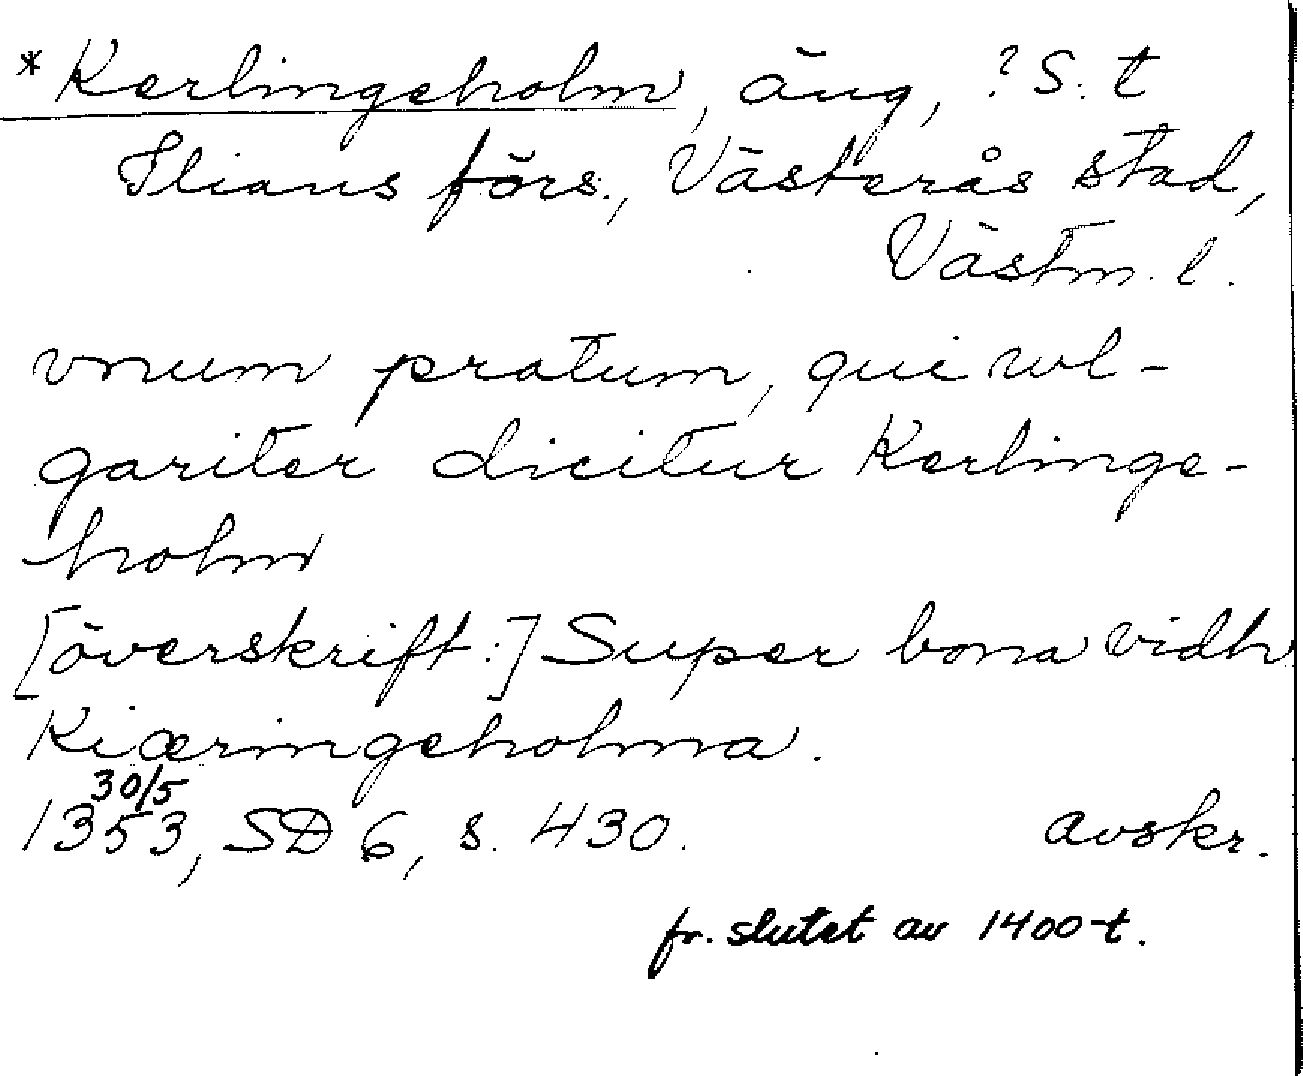 * Kerlingeholm, äng, ? S:t
Ilians förs., Västerås stad,
Västm. l.
vnum pratum, qui wl-
gariter dicitur Kerlinge-
holm
[överskrift:] Super bona vidh
Kiæringeholma.
30/5
1353, SD 6, s. 430. avskr.
fr. slutet av 1400-t.